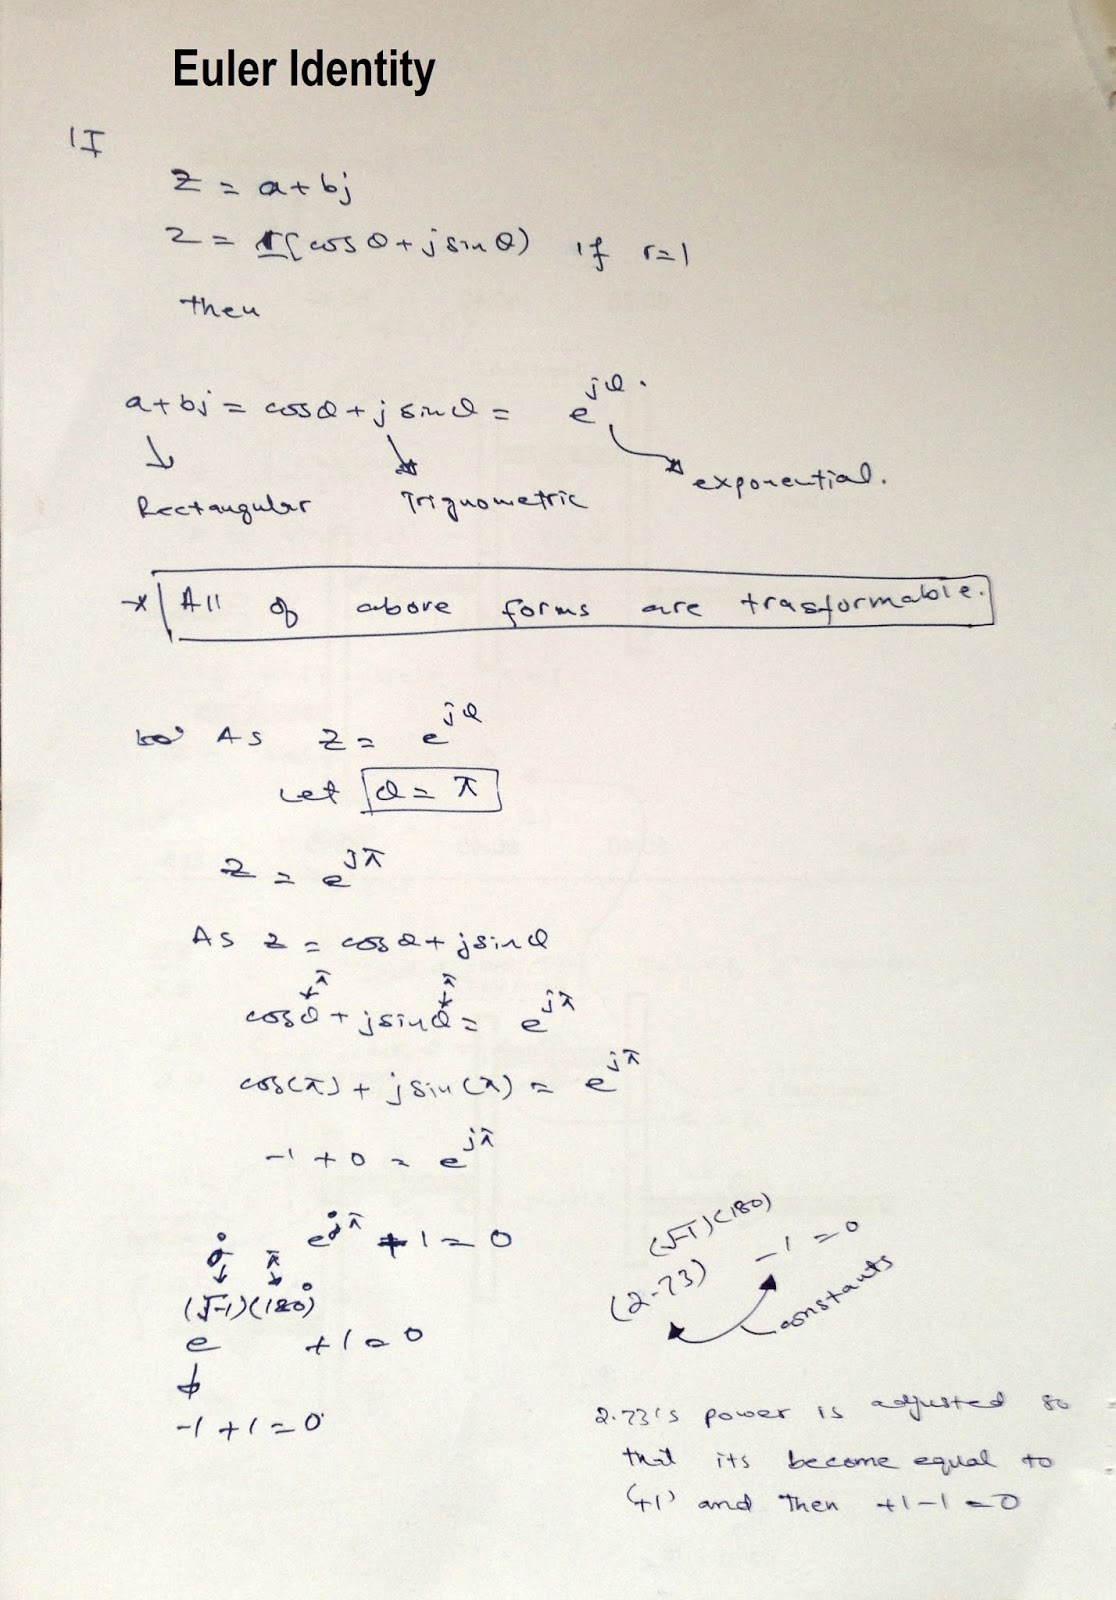 Euler Identity
If
z = a + bj
z = r(cos θ + j sin θ) if r=1
then
a + bj = cosθ + j sinθ = e^jθ.
Rectangular Trignometric exponential.
* All of above forms are trasformable.
As z = e^jθ
Let θ = π
z = e^jπ
As z = cosθ + jsinθ
π π
cosθ + jsinθ = e^jπ
cos(π) + j sin(π) = e^jπ
-1 + 0 = e^jπ
e^jπ + 1 = 0
j π
e^(√-1)(180°) + 1 = 0
-1 + 1 = 0
(2.73)^(√-1)(180) - 1 = 0
constants
2.73's power is adjusted so
that its become equal to
(+1) and then +1-1=0